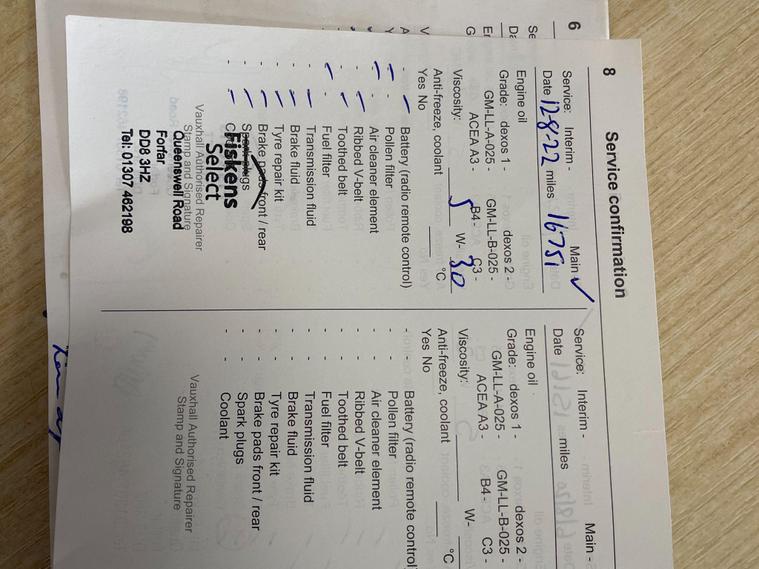 8
Service confirmation
Service: Interim - Main ✓
Date 12-8-22 miles 16751
Engine oil
Grade: dexos 1 - dexos 2 -
GM-LL-A-025 - GM-LL-B-025 -
ACEA A3 - B4 - C3 -
Viscosity: 5 W- 30
Anti-freeze, coolant °C
Yes No
- Battery (radio remote control)
- Pollen filter
- Air cleaner element
- Ribbed V-belt
- Toothed belt
- Fuel filter
- Transmission fluid
- Brake fluid
- Tyre repair kit
- Brake pads front / rear
- Spark plugs
Fiskens
Select
Vauxhall Authorised Repairer
Stamp and Signature
Queenswell Road
Forfar
DD8 3HZ
Tel: 01307 462198
Service: Interim - Main -
Date miles
Engine oil
Grade: dexos 1 - dexos 2 -
GM-LL-A-025 - GM-LL-B-025 -
ACEA A3 - B4 - C3 -
Viscosity: W-
Anti-freeze, coolant °C
Yes No
- - Battery (radio remote control
- - Pollen filter
- - Air cleaner element
- - Ribbed V-belt
- - Toothed belt
- - Fuel filter
- - Transmission fluid
- - Brake fluid
- - Tyre repair kit
- - Brake pads front / rear
- - Spark plugs
- - Coolant
Vauxhall Authorised Repairer
Stamp and Signature
6